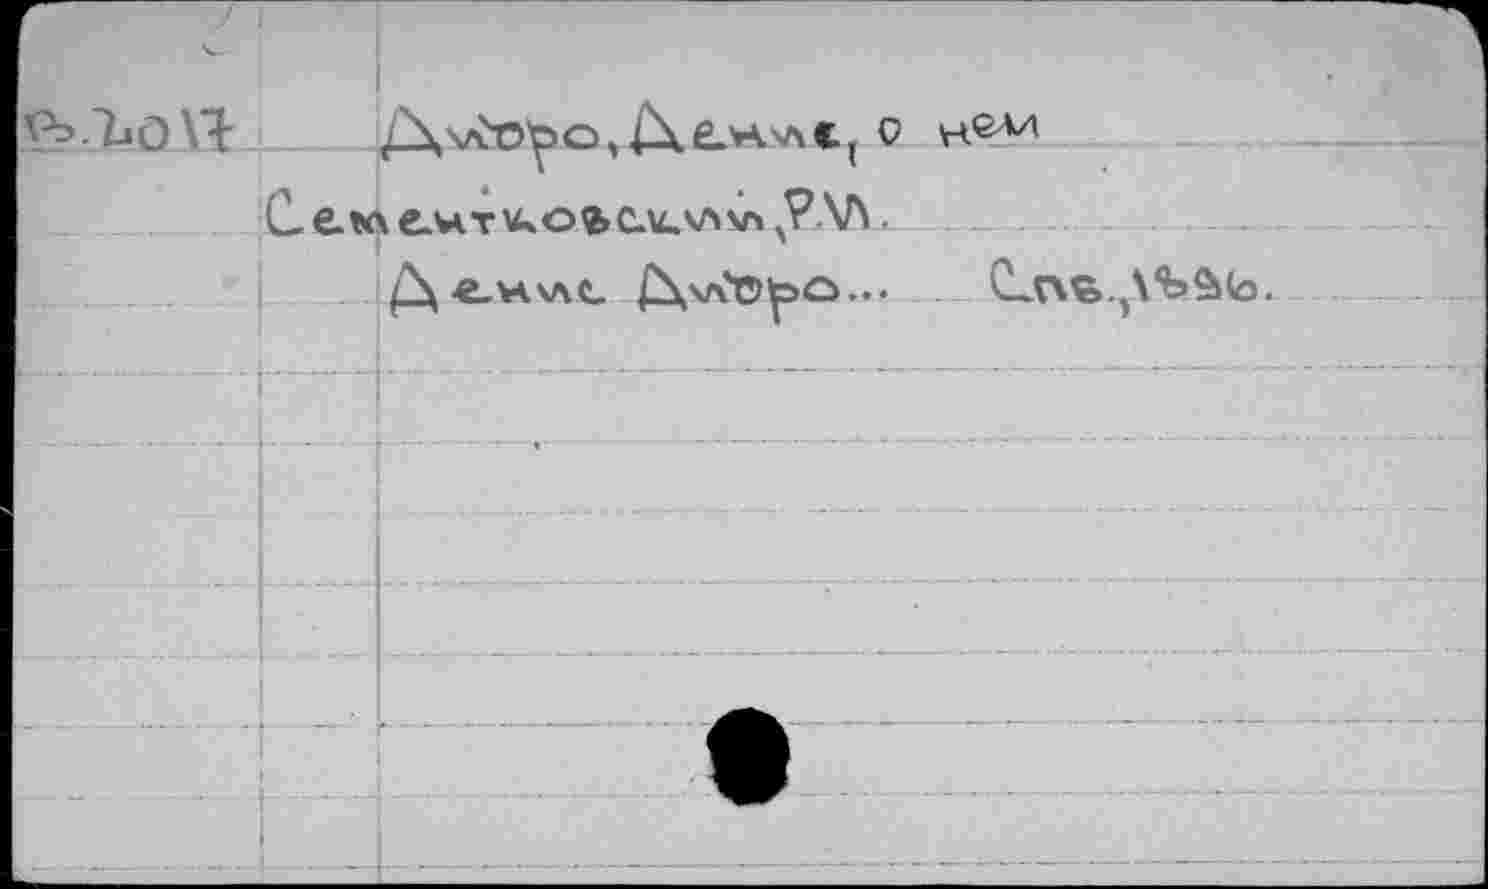 Дидро, Дени, о нем
Сементковский, Р.И.
Денис Дидро... Спб., 1896.